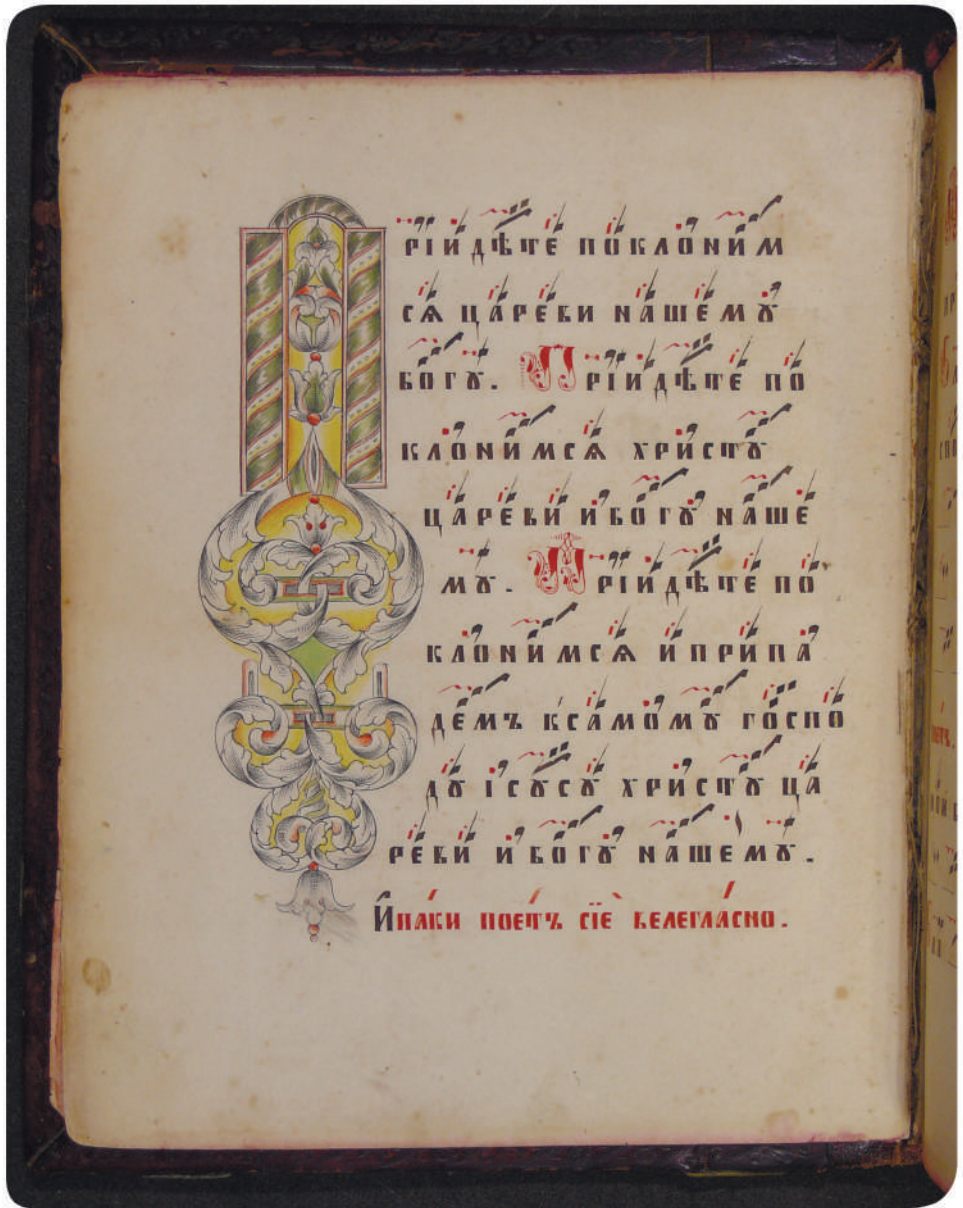 Прїидѣте поклоним
сѧ цареви нашемꙋ
богꙋ. Прїидѣте по
клонимсѧ христꙋ
цареви и богꙋ наше
мꙋ. Прїидѣте по
клонимсѧ и припа
демъ ксамомꙋ госпо
дꙋ ісꙋсꙋ христꙋ ца
реви и богꙋ нашемꙋ.
И҆па́ки пое́тъ сїѐ велегла́сно.